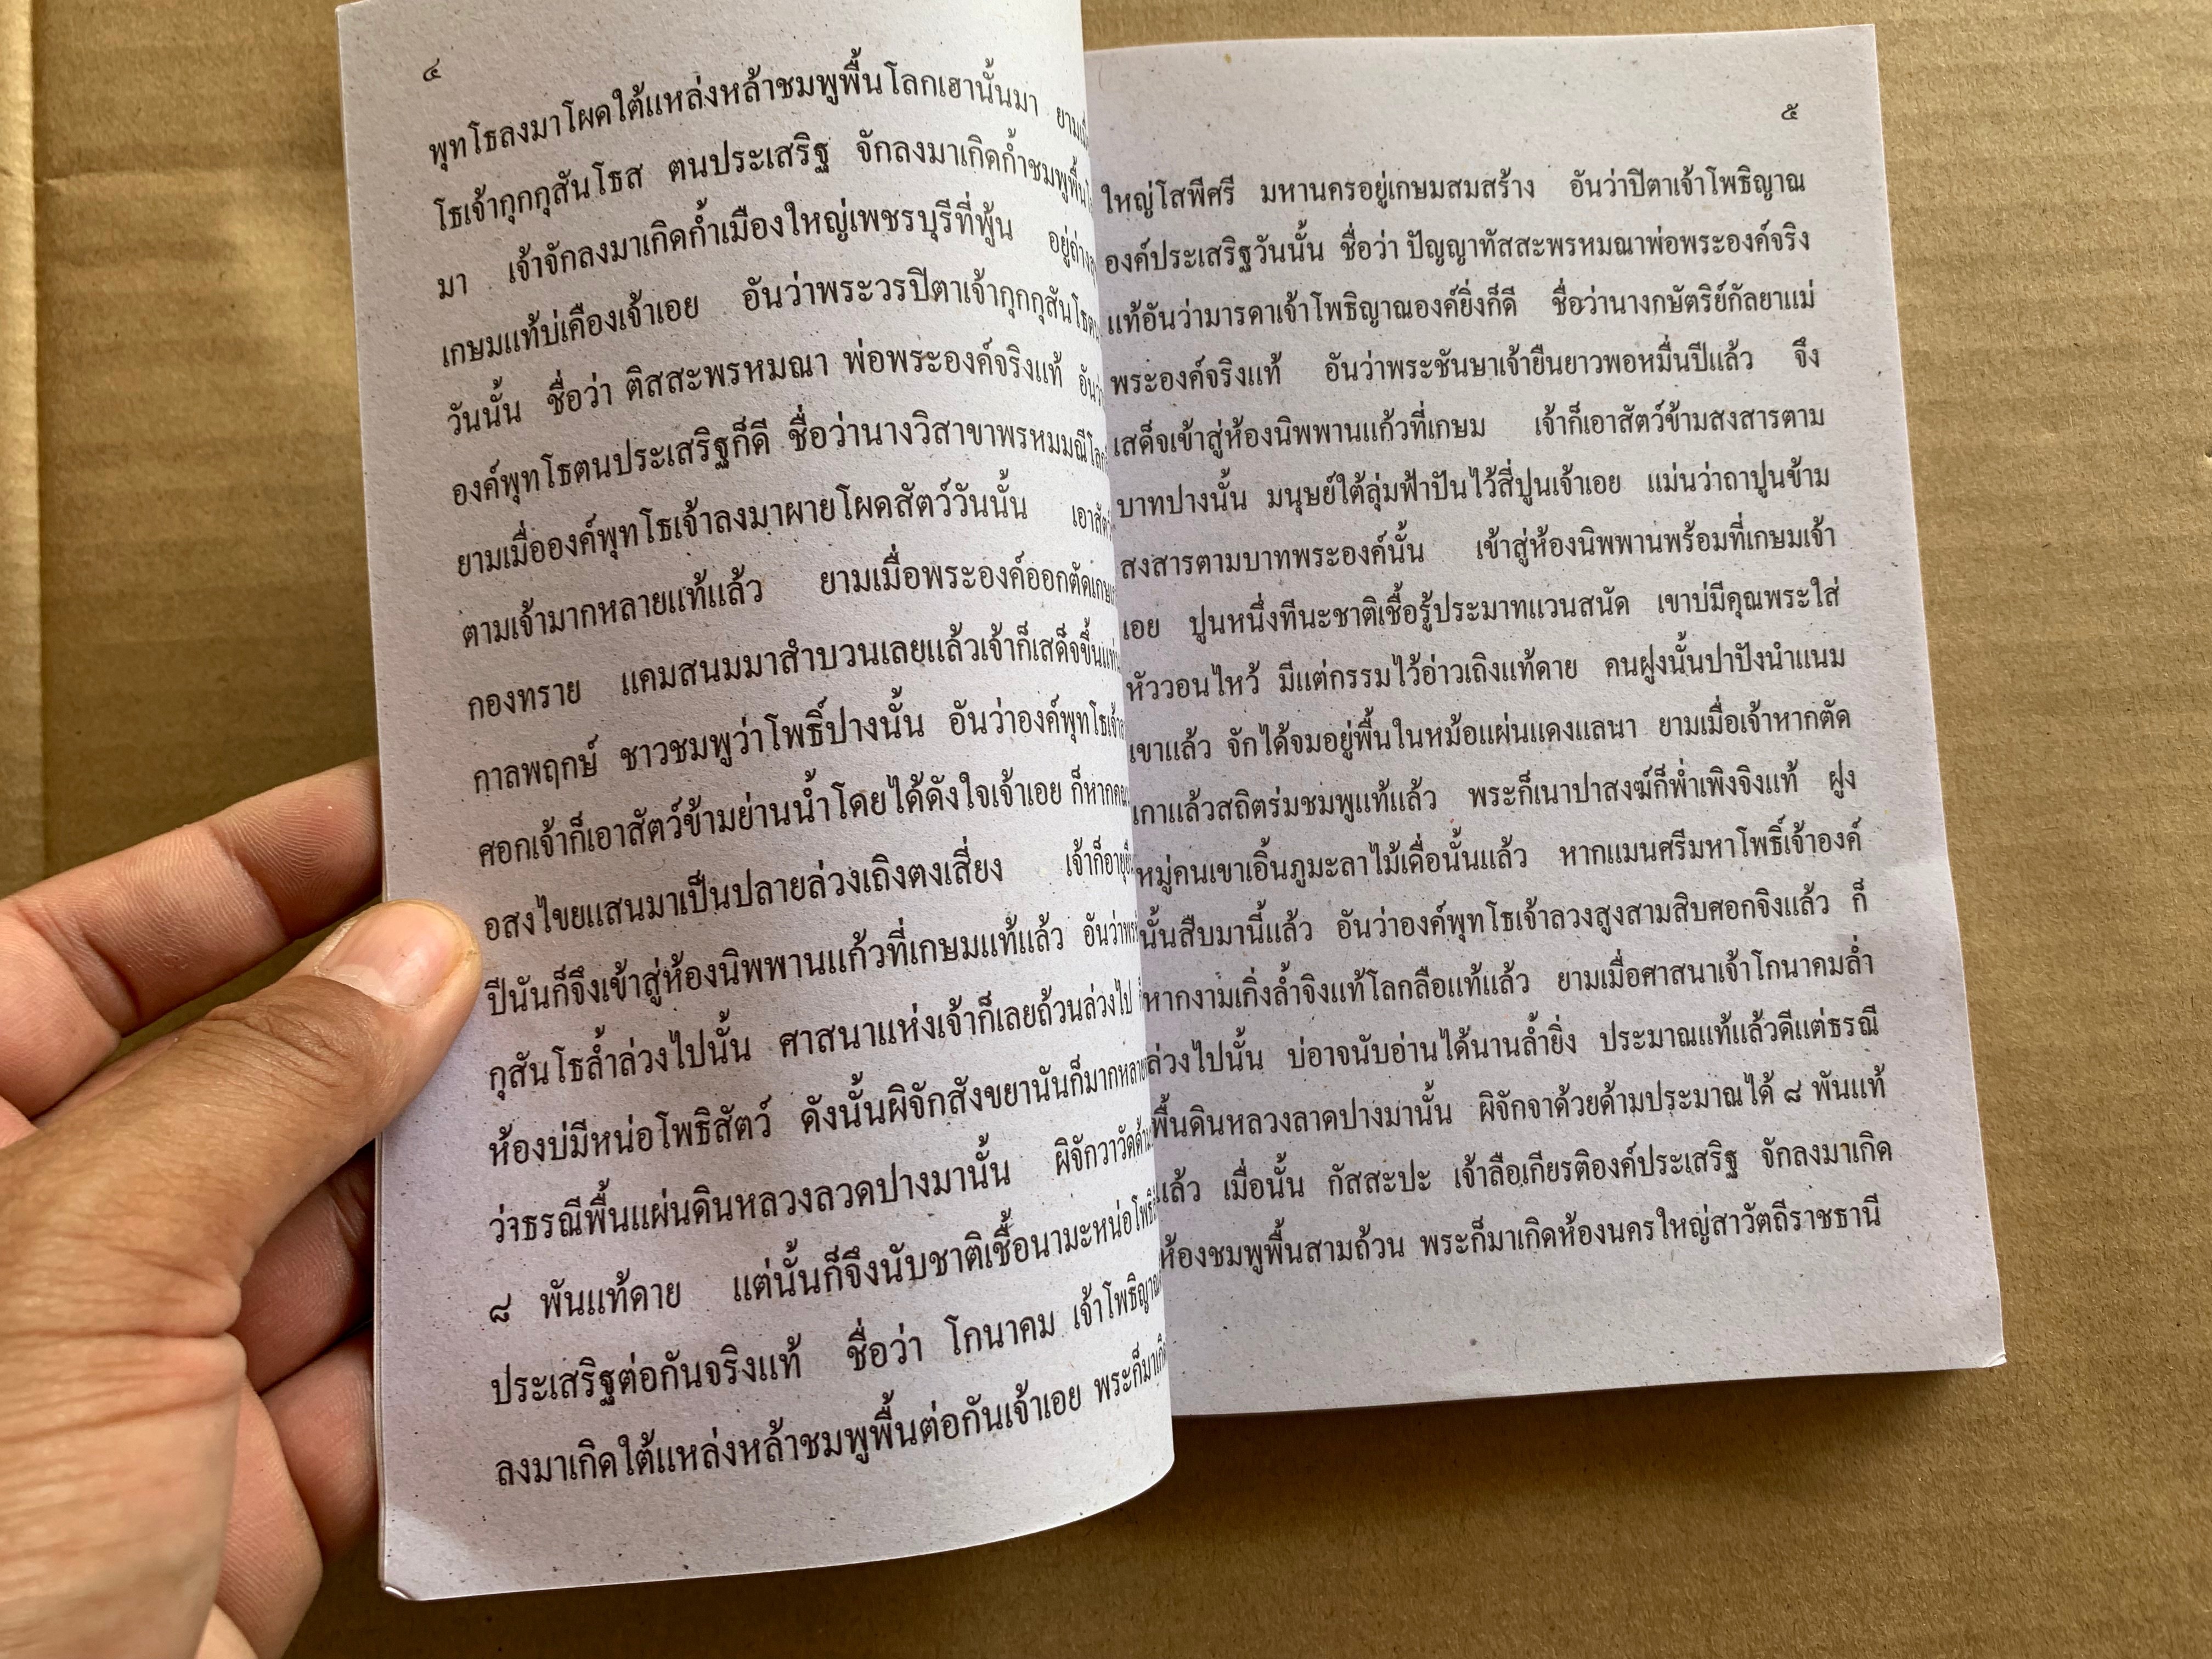 ๔
พุทโธลงมาโผดใต้แหล่งหล้าชมพูพื้นโลกเฮานั้นมา
โธเจ้ากุกกุสันโธส ตนประเสริฐ จักลงมาเกิดก้ำชมพูพื้น
มา เจ้าจักลงมาเกิดก้ำเมืองใหญ่เพชรบุรีที่พู้น
เกษมแท้บ่เคืองเจ้าเอย อันว่าพระวรปีตาเจ้ากุกกุสันโธ
วันนั้น ชื่อว่า ติสสะพรหมณา พ่อพระองค์จริงแท้
องค์พุทโธตนประเสริฐก็ดี ชื่อว่านางวิสาขาพรหมมณีโลก
ยามเมื่อองค์พุทโธเจ้าลงมาผายโผดสัตว์วันนั้น
ตามเจ้ามากหลายแท้แล้ว ยามเมื่อพระองค์ออกตัด
กองทราย แคมสนมมาสำบวนเลยแล้วเจ้าก็เสด็จขึ้น
กาลพฤกษ์ ชาวชมพูว่าโพธิ์ปางนั้น อันว่าองค์พุทโธเจ้า
ศอกเจ้าก็เอาสัตว์ข้ามย่านน้ำโดยได้ดังใจเจ้าเอย ก็หาก
อสงไขยแสนมาเป็นปลายล่วงเถิงตงเสี่ยง เจ้าก็อายุ
ปีนันก็จึงเข้าสู่ห้องนิพพานแก้วที่เกษมแท้แล้ว
กุสันโธล้ำล่วงไปนั้น ศาสนาแห่งเจ้าก็เลยถ้วนล่วงไป
ห้องบ่มีหน่อโพธิสัตว์ ดังนั้นผิจักสังขยานันก็มากหลาย
ว่าธรณีพื้นแผ่นดินหลวงลวดปางมานั้น ผิจักวาวัดด้าม
๘ พันแท้ดาย แต่นั้นก็จึงนับชาติเชื้อนามะหน่อ
ประเสริฐต่อกันจริงแท้ ชื่อว่า โกนาคม เจ้าโพธิญาณ
ลงมาเกิดใต้แหล่งหล้าชมพูพื้นต่อกันเจ้าเอย พระก็มาเกิด
๕
ใหญ่โสพีศรี มหานครอยู่เกษมสมสร้าง อันว่าปีตาเจ้าโพธิญาณ
องค์ประเสริฐวันนั้น ชื่อว่า ปัญญาทัสสะพรหมณาพ่อพระองค์จริง
แท้อันว่ามารดาเจ้าโพธิญาณองค์ยิ่งก็ดี ชื่อว่านางกษัตริย์กัลยาแม่
พระองค์จริงแท้ อันว่าพระชันษาเจ้ายืนยาวพอหมื่นปีแล้ว จึง
เสด็จเข้าสู่ห้องนิพพานแก้วที่เกษม เจ้าก็เอาสัตว์ข้ามสงสารตาม
บาทปางนั้น มนุษย์ใต้ลุ่มฟ้าปันไว้สี่ปูนเจ้าเอย แม่นว่าถาปูนข้าม
สงสารตามบาทพระองค์นั้น เข้าสู่ห้องนิพพานพร้อมที่เกษมเจ้า
เอย ปูนหนึ่งทีนะชาติเชื้อรู้ประมาทแวนสนัด เขาบ่มีคุณพระใส่
หัววอนไหว้ มีแต่กรรมไว้อ่าวเถิงแท้ดาย คนฝูงนั้นปาปังนำแนม
เขาแล้ว จักได้จมอยู่พื้นในหม้อแผ่นแดงแลนา ยามเมื่อเจ้าหากตัด
เกาแล้วสถิตร่มชมพูแท้แล้ว พระก็เนาปาสงฆ์ก็พ่ำเพิงจิงแท้ ฝูง
หมู่คนเขาเอิ้นภูมะลาไม้เดื่อนั้นแล้ว หากแมนศรีมหาโพธิ์เจ้าองค์
นั้นสืบมานี้แล้ว อันว่าองค์พุทโธเจ้าลวงสูงสามสิบศอกจิงแล้ว ก็
หากงามเกิ่งล้ำจิงแท้โลกลือแท้แล้ว ยามเมื่อศาสนาเจ้าโกนาคมล่ำ
ล่วงไปนั้น บ่อาจนับอ่านได้นานล้ำยิ่ง ประมาณแท้แล้วดีแต่ธรณี
พื้นดินหลวงลาดปางมานั้น ผิจักจาด้วยด้ามประมาณได้ ๘ พันแท้
แล้ว เมื่อนั้น กัสสะปะ เจ้าลือเกียรติองค์ประเสริฐ จักลงมาเกิด
ห้องชมพูพื้นสามถ้วน พระก็มาเกิดห้องนครใหญ่สาวัตถีราชธานี